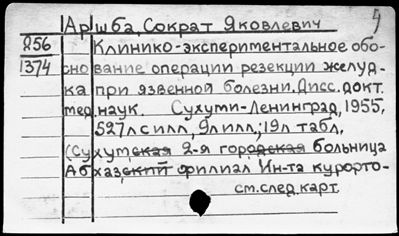 Аршба, Сократ Яковлевич
856
1374
Клинико-экспериментальное обо-
снование операции резекции желуд-
ка при язвенной болезни. Дисс. докт.
мед. наук. Сухуми-Ленинград, 1955,
527л с илл, 9л илл.; 19л табл.
(Сухумская 2-я городская больница
Абхазский филиал Ин-та курорто-
см. след. карт.